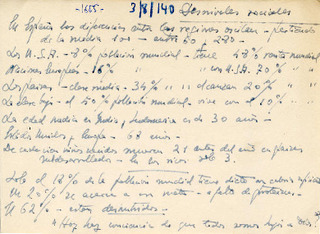 -1655- 3/8/140 Desniveles sociales
En España las diferencias entre las regiones oscilan - partiendo
de la media 100 - entre 60 - 270 -
Los U.S.A. - 8% población mundial - tiene 48% renta mundial
Naciones Europeas - 16% " " con U.S.A. 70% "
Los países - clase media - 34% " alcanzan 20% "
La clase baja - el 50% población mundial, vive con el 10% "
La edad media en India, Sudamérica es de 30 años -
Estados Unidos y Europa - 68 años -
De cada cien niños nacidos mueren 21 antes del año en países
subdesarrollados - en los ricos solo 3.
Solo el 18% de la población mundial tiene dieta en calorías
Un 20% se acerca a esa meta - a falta de proteínas -
El 62% - están desnutridos -
"Hoy hay conciencia de que todos somos hijos de Dios"